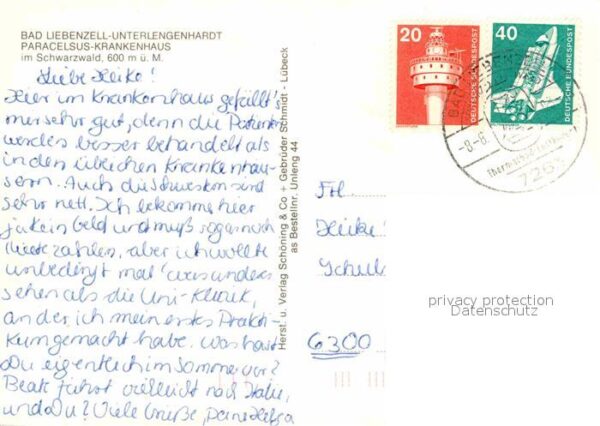 BAD LIEBENZELL-UNTERLENGENHARDT
PARACELSUS-KRANKENHAUS
im Schwarzwald, 600 m ü. M.
Liebe Heike!
Hier im Krankenhaus gefällt's
mir sehr gut, denn die Patienten
werden besser behandelt als
in den üblichen Krankenhäu-
sern. Auch die Schwestern sind
sehr nett. Ich bekomme hier
ja kein Geld und muß sogar noch
Miete zahlen, aber ich wollte
unbedingt mal was anderes
sehen als die Uni-Klinik,
an der ich mein erstes Prakti-
kum gemacht habe. Was hast
Du eigentlich im Sommer vor?
Beate fährt vielleicht nach Italien,
und Du? Viele Grüße, Deine Helga
Herst. u. Verlag Schöning & Co + Gebrüder Schmidt - Lübeck
as Bestellnr. Unleng 44
20
DEUTSCHE BUNDESPOST
40
DEUTSCHE BUNDESPOST
BAD LIEBENZELL
-8-6
7263
Frl.
Heike
Schul
6300
privacy protection
Datenschutz